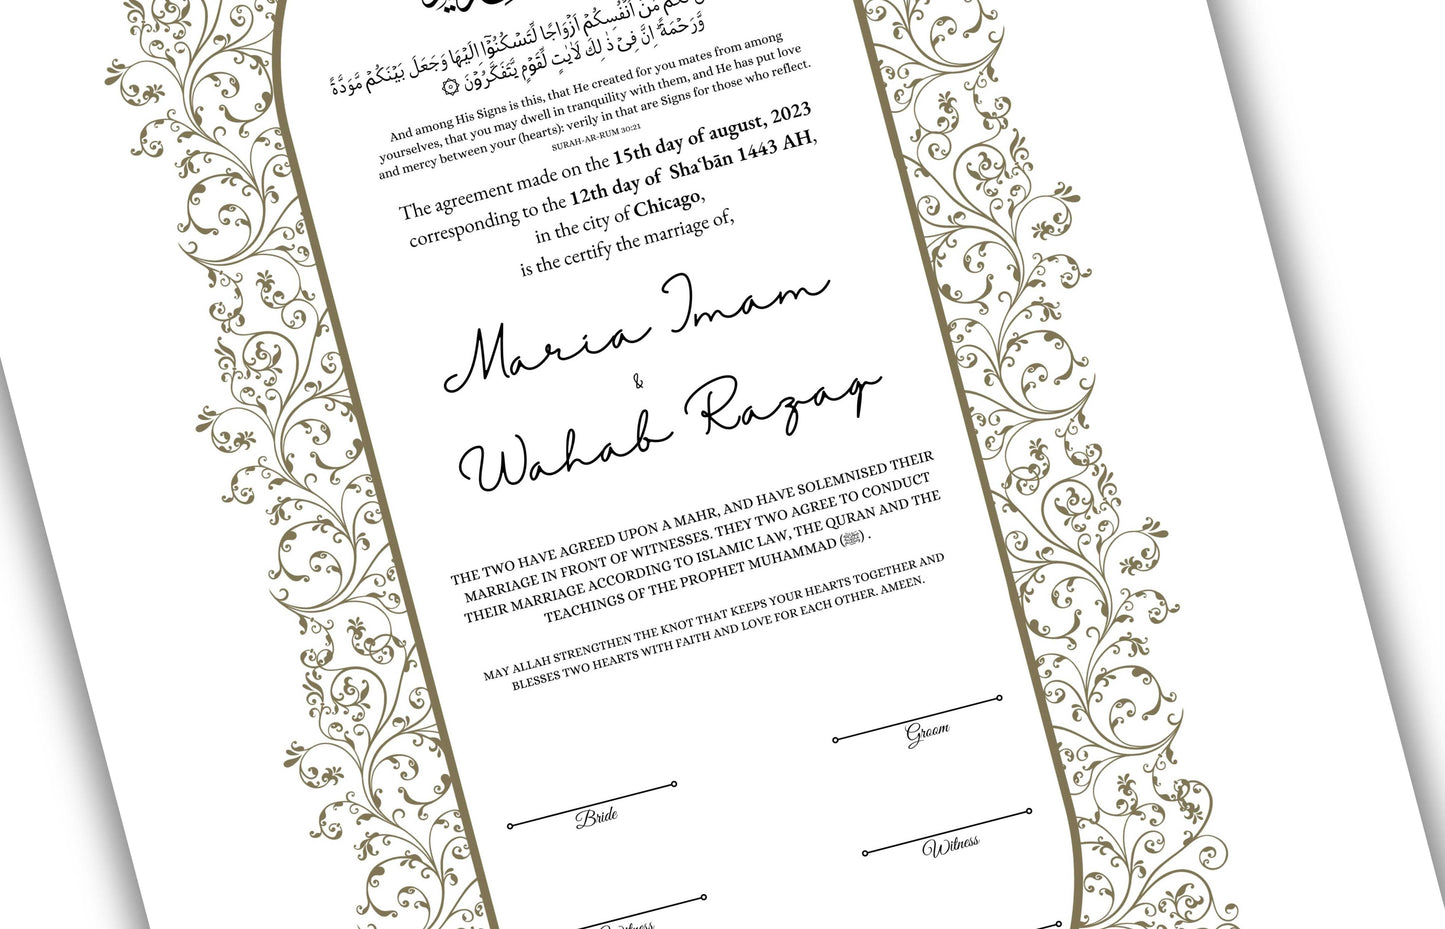 مِّنْ اَنْفُسِكُمْ اَزْوَاجًا لِّتَسْكُنُوْٓا اِلَيْهَا وَجَعَلَ بَيْنَكُمْ مَّوَدَّةً
وَّرَحْمَةً ؕ اِنَّ فِيْ ذٰ لِكَ لَاٰيٰتٍ لِّقَوْمٍ يَّتَفَكَّرُوْنَ
And among His Signs is this, that He created for you mates from among
yourselves, that you may dwell in tranquility with them, and He has put love
and mercy between your (hearts): verily in that are Signs for those who reflect.
SURAH-AR-RUM 30:21
The agreement made on the 15th day of august, 2023
corresponding to the 12th day of Sha‘bān 1443 AH,
in the city of Chicago,
is the certify the marriage of,
Maria Imam
&
Wahab Razaq
THE TWO HAVE AGREED UPON A MAHR, AND HAVE SOLEMNISED THEIR
MARRIAGE IN FRONT OF WITNESSES. THEY TWO AGREE TO CONDUCT
THEIR MARRIAGE ACCORDING TO ISLAMIC LAW, THE QURAN AND THE
TEACHINGS OF THE PROPHET MUHAMMAD (ﷺ) .
MAY ALLAH STRENGTHEN THE KNOT THAT KEEPS YOUR HEARTS TOGETHER AND
BLESSES TWO HEARTS WITH FAITH AND LOVE FOR EACH OTHER. AMEEN.
Groom
Bride
Witness
Witness